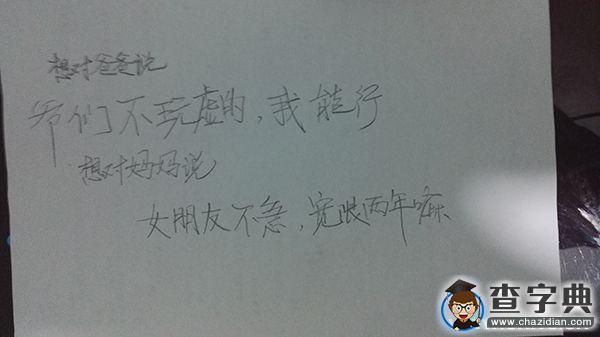 想对爸爸说
爷们不玩虚的，我能行
想对妈妈说
女朋友不急，宽限两年嘛
查字典
www.chazidian.com